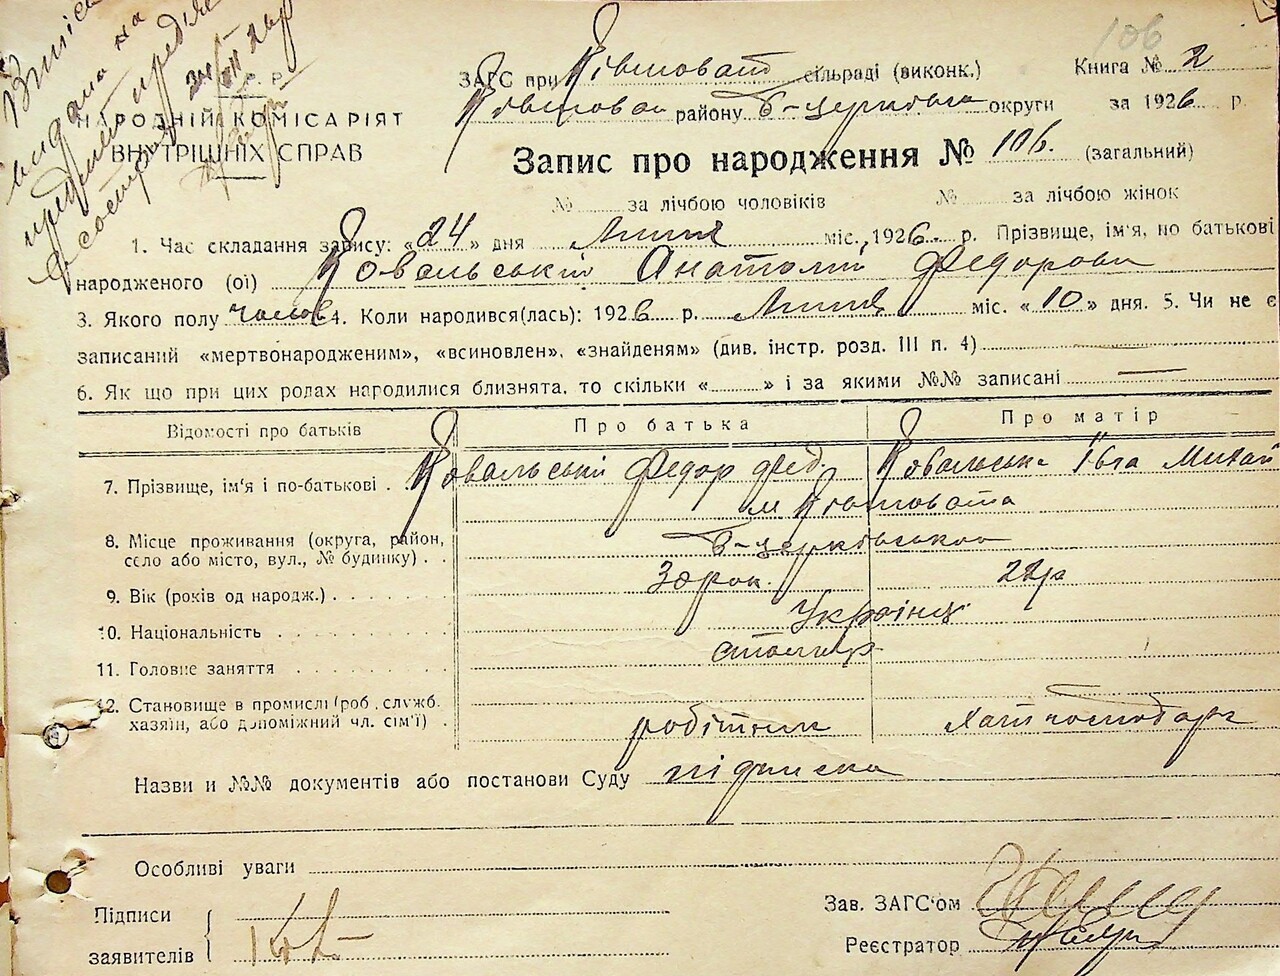 видана на
Р. Р.
НАРОДНІЙ КОМІСАРІЯТ
ВНУТРІШНІХ СПРАВ
106
ЗАГС при Ківшоват сільраді (виконк.) Книга № 2
Ківшоват району Б-церківська округи за 1926 р.
Запис про народження № 106. (загальний)
№ за лічбою чоловіків № за лічбою жінок
1. Час складання запису: «24» дня Липня міс. 1926 р. Прізвище, ім'я, по батькові
народженого (ої) Ковальський Анатолій Федорови
3. Якого полу чолов 4. Коли народився(лась): 1926 р. Липня міс. «10» дня. 5. Чи не є
записаний «мертвонародженим», «всиновлен», «знайденям» (див. інстр. розд. III п. 4)
6. Як що при цих родах народилися близнята, то скільки « » і за якими №№ записані
Відомості про батьків Про батька Про матір
7. Прізвище, ім'я і по-батькові . Ковальський Федор Фед. Ковальська Івга Михай
м Ківшовата
8. Місце проживання (округа, район,
село або місто, вул., № будинку) . . Б-церківської
9. Вік (років од народж.) 30 рок. 22 р
10. Національність Українці
11. Головне заняття столяр
12. Становище в промислі (роб., службі.
хазяїн, або допоміжний чл. сім'ї) . робітник Хатн господарк
Назви и №№ документів або постанови Суду підписка
Особливі уваги
Підписи
заявителів
Зав. ЗАГС'ом
Реєстратор